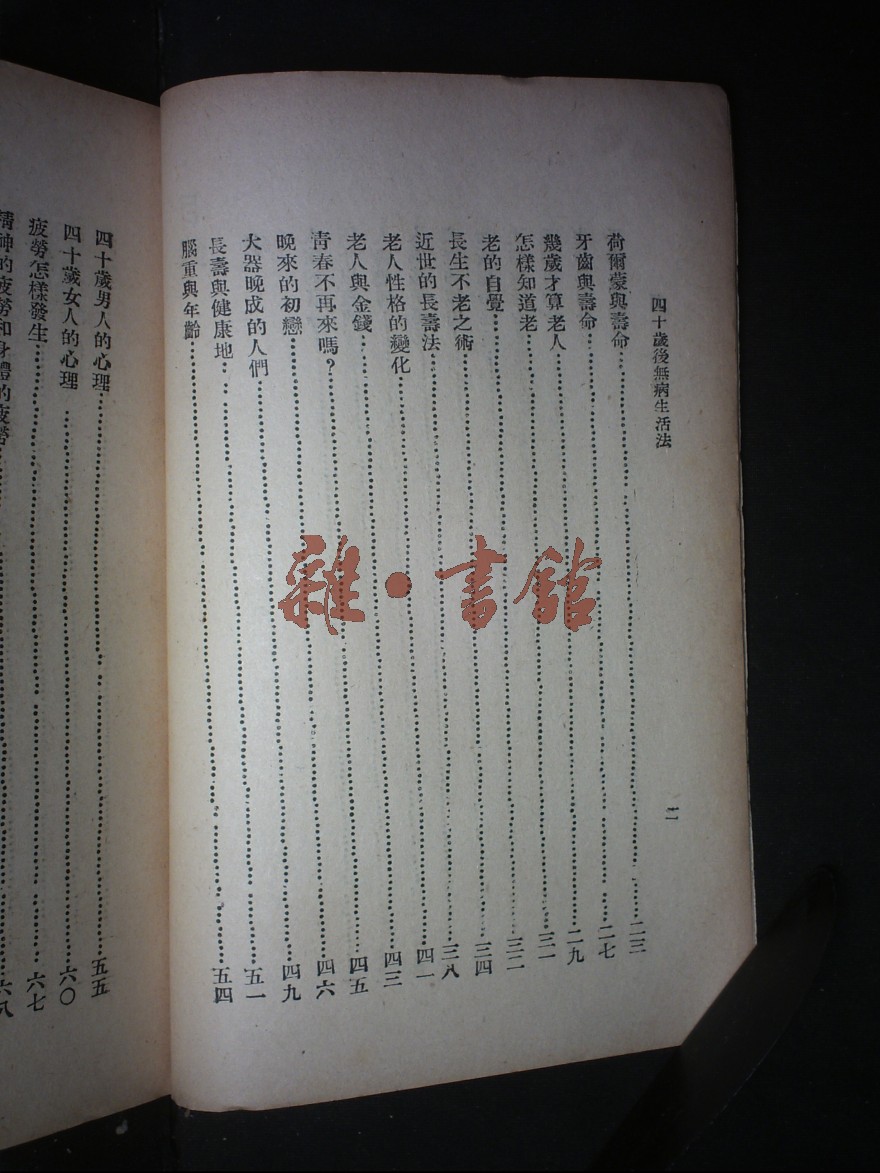 四十歲後無病生活法 二
荷爾蒙與壽命……二三
牙齒與壽命……二七
幾歲才算老人……二九
怎樣知道老……三一
老的自覺……三二
長生不老之術……三四
近世的長壽法……三八
老人性格的變化……四一
老人與金錢……四三
青春不再來嗎？……四五
晚來的初戀……四六
大器晚成的人們……四九
長壽與健康地……五一
腦重與年齡……五四
四十歲男人的心理……五五
四十歲女人的心理……六〇
疲勞怎樣發生……六七
精神的疲勞和身體的疲勞……六八
雜·書館